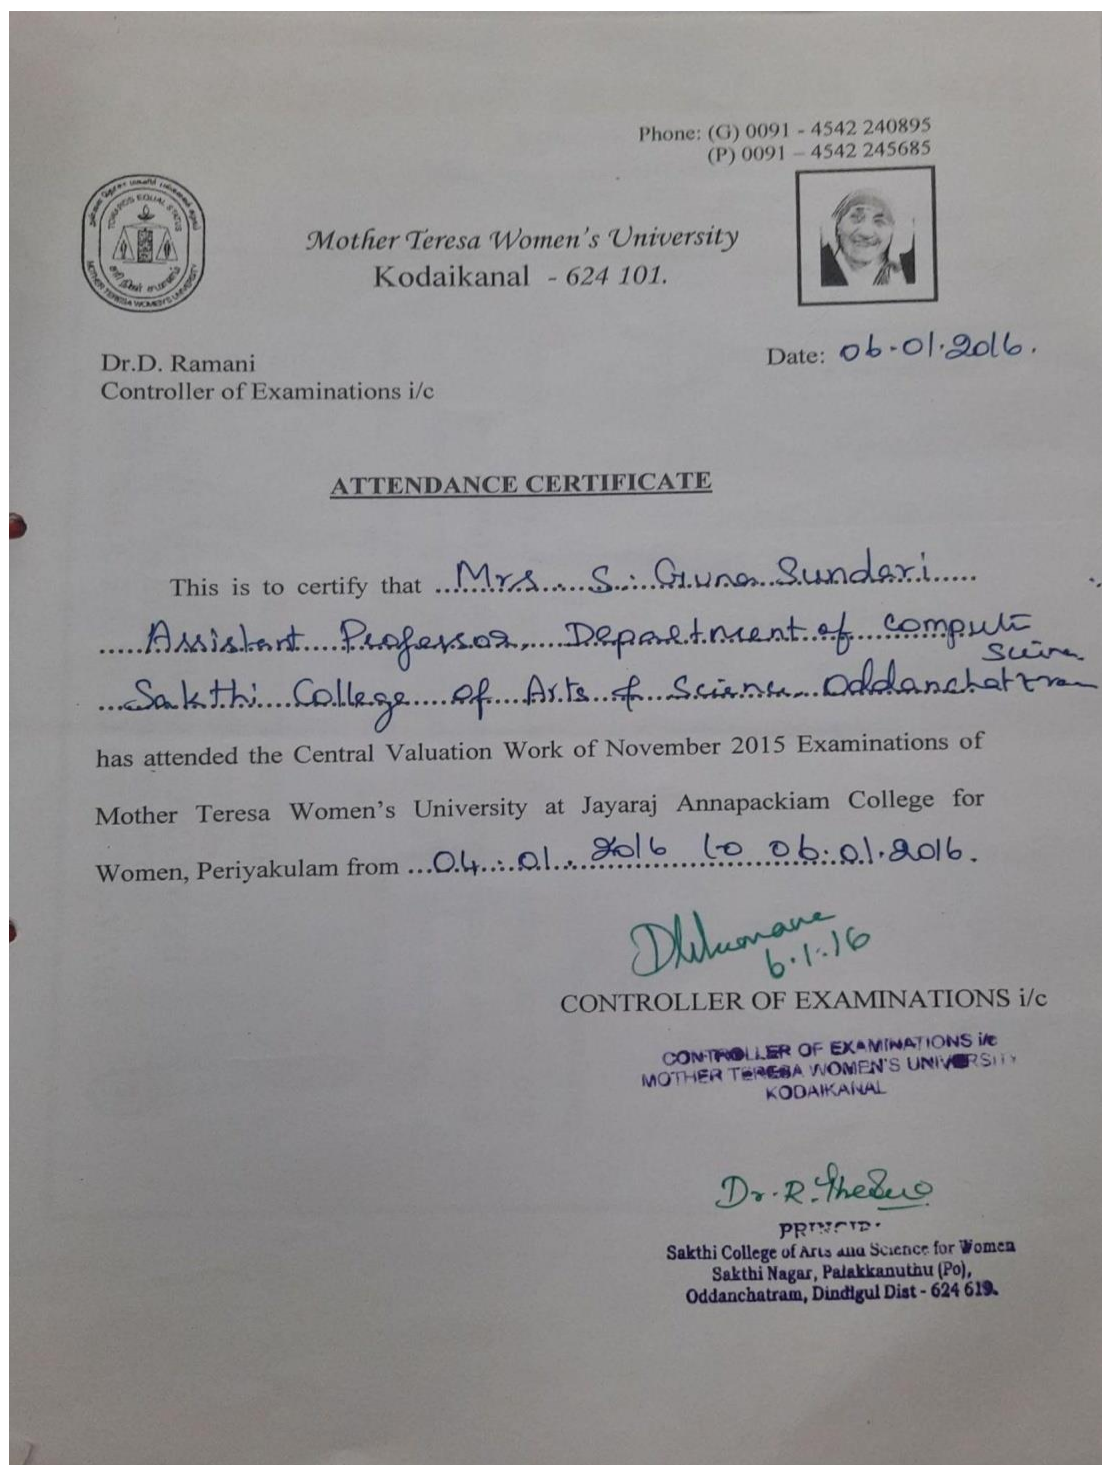 Phone: (G) 0091 - 4542 240895
(P) 0091 – 4542 245685
TOWARDS EQUAL STATUS
MOTHER TERESA WOMEN'S UNIVERSITY
Mother Teresa Women's University
Kodaikanal - 624 101.
Date: 06.01.2016.
Dr.D. Ramani
Controller of Examinations i/c
ATTENDANCE CERTIFICATE
This is to certify that Mrs. S. Guna Sundari
Assistant Professor, Department of Computer
Science
Sakthi College of Arts & Science Oddanchatram
has attended the Central Valuation Work of November 2015 Examinations of
Mother Teresa Women's University at Jayaraj Annapackiam College for
Women, Periyakulam from 04.01.2016 to 06.01.2016.
6.1.16
CONTROLLER OF EXAMINATIONS i/c
CONTROLLER OF EXAMINATIONS i/c
MOTHER TERESA WOMEN'S UNIVERSITY
KODAIKANAL
Dr. R.
Sakthi College of Arts and Science for Women
Sakthi Nagar, Palakkanuthu (Po),
Oddanchatram, Dindigul Dist - 624 619.